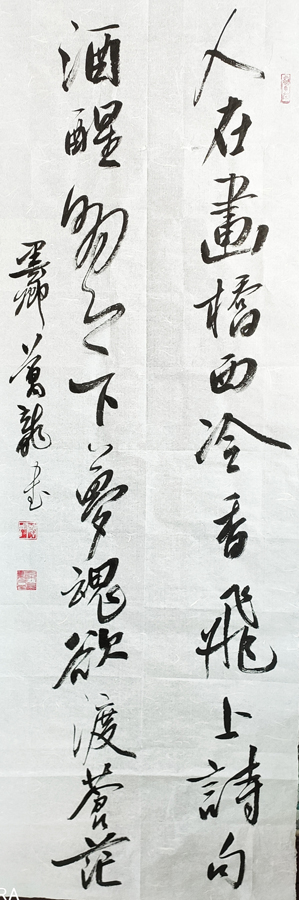 人在畫橋西冷香飛上詩句
酒醒明月下夢魂欲渡蒼茫
墨龍书
RA